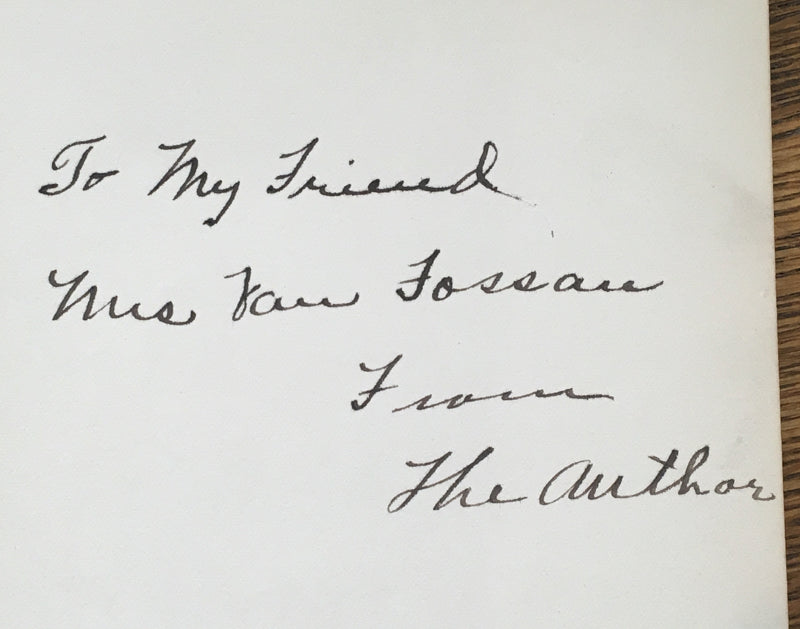 To My Friend
Mrs Van Fossan
From
The Author